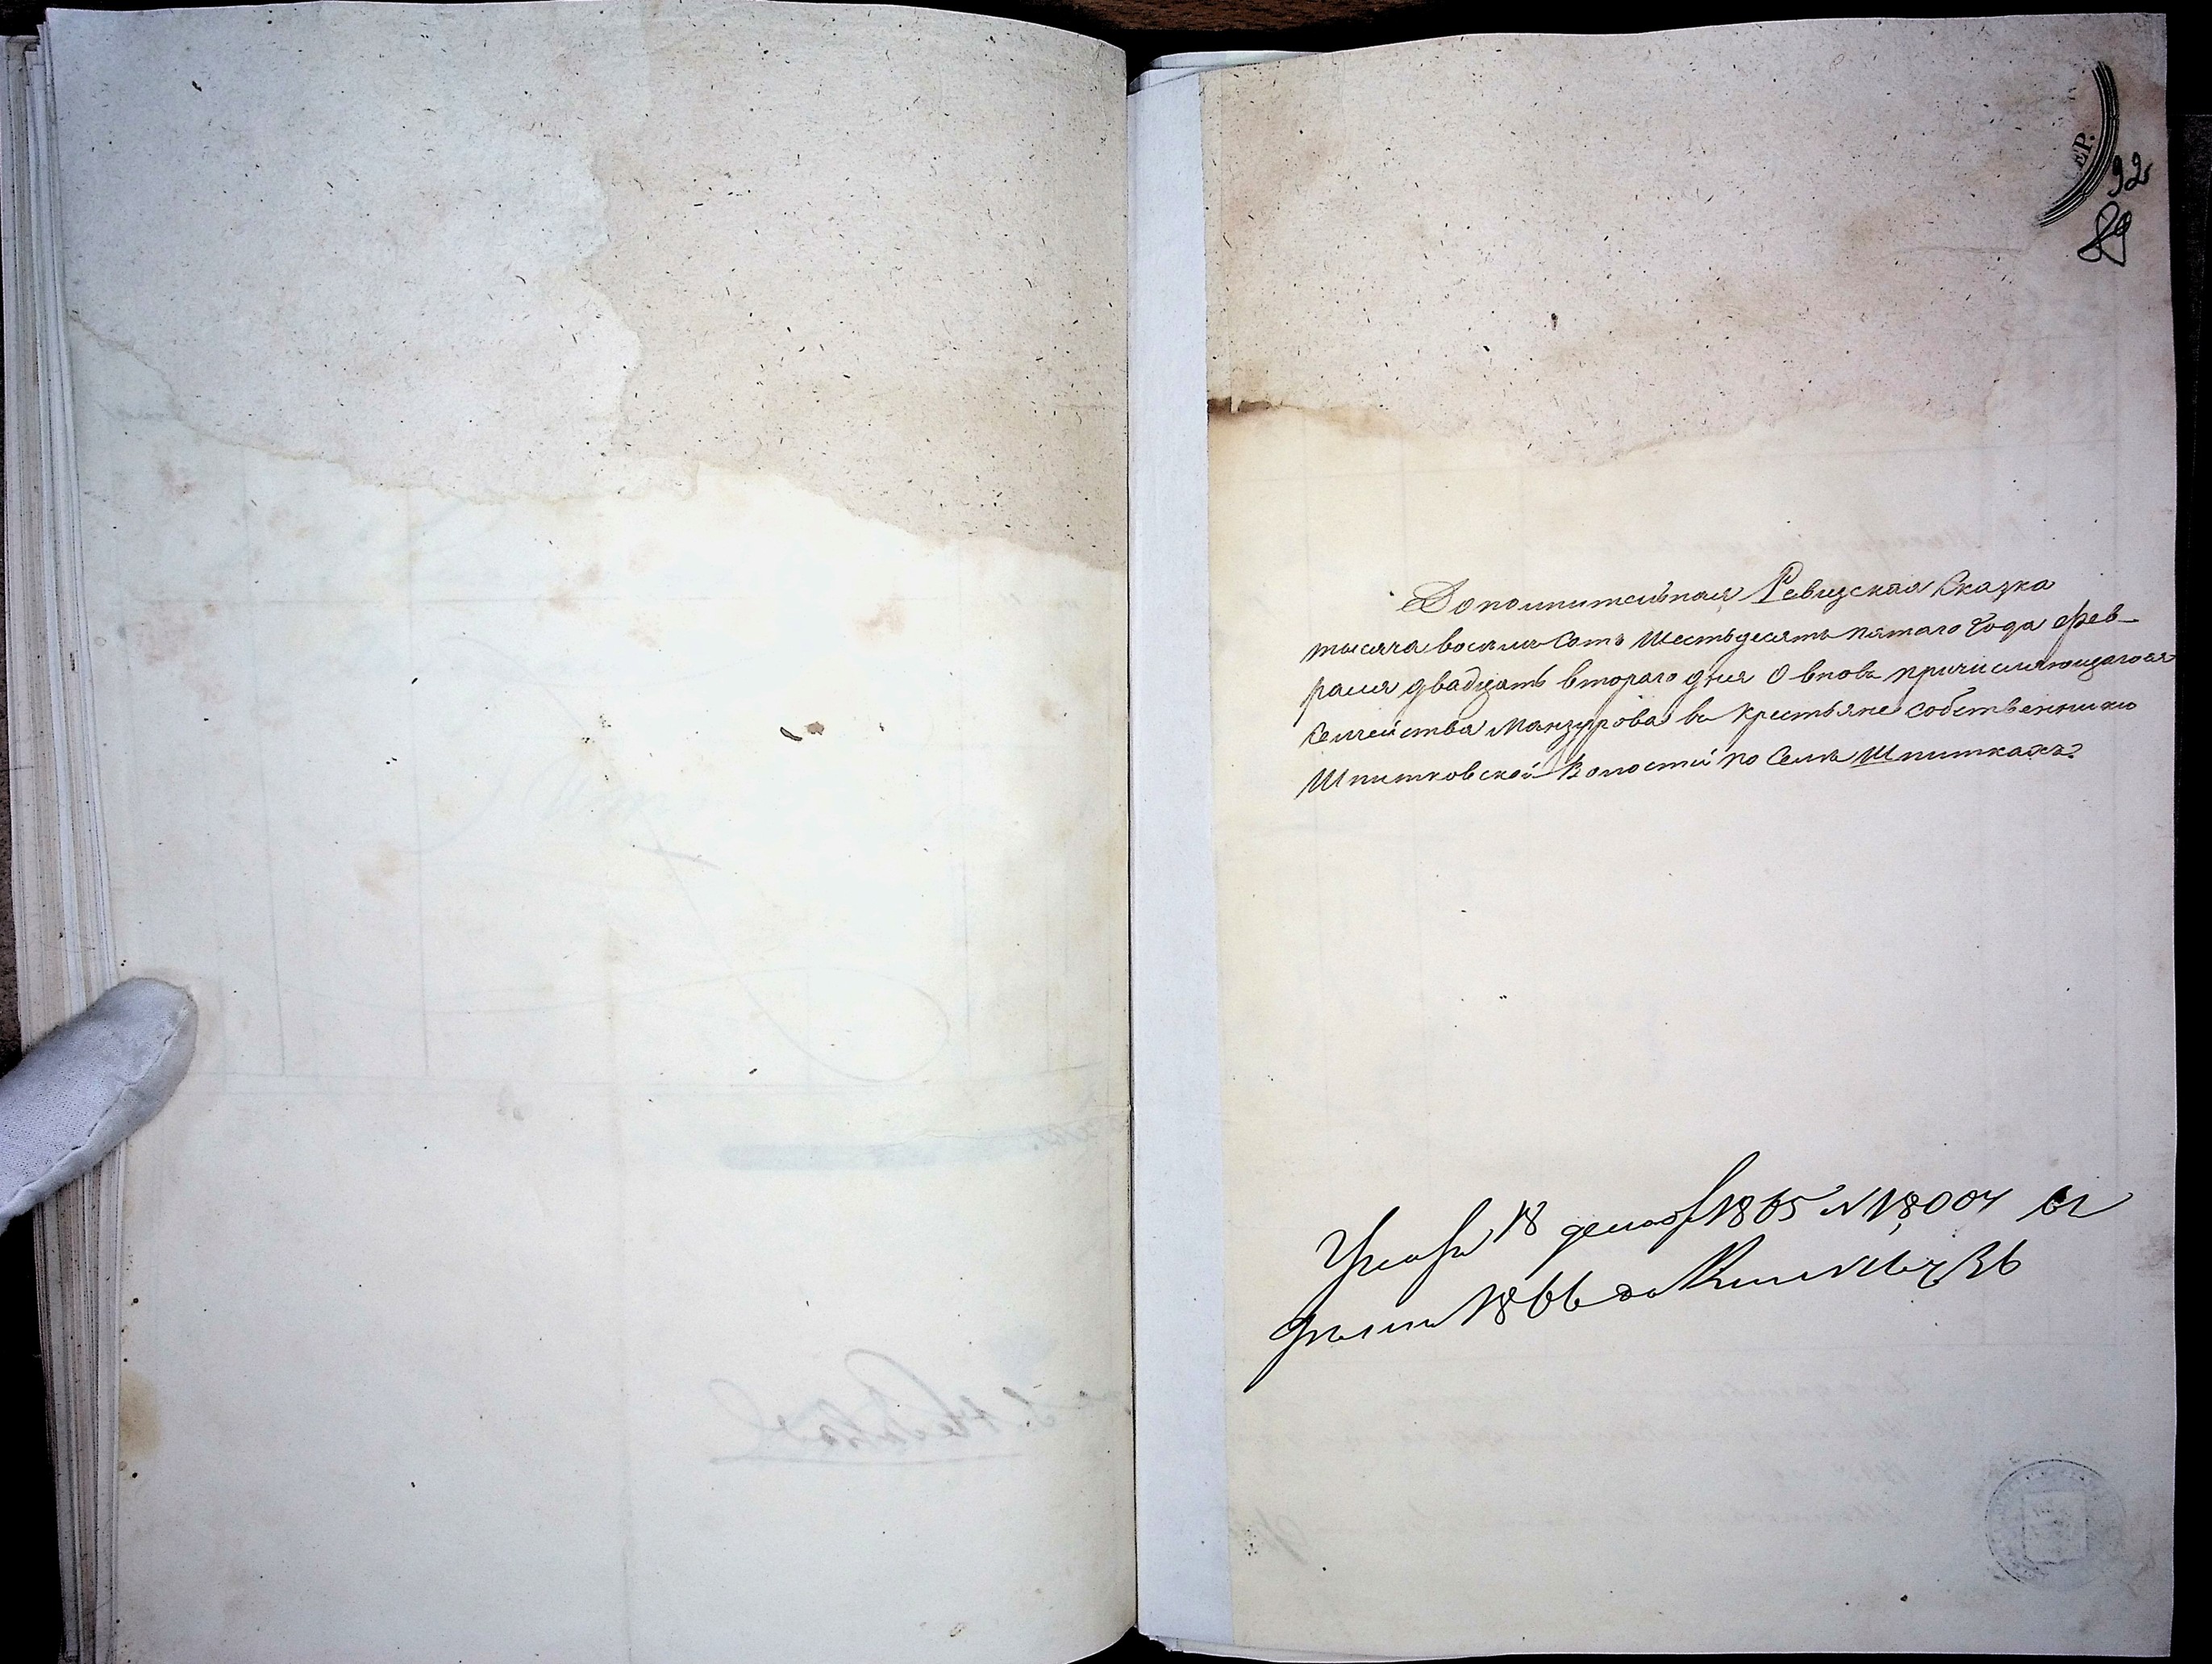 ЕР.
92
89
Дополнительная Ревизская Сказка
тысяча восемь Сотъ Шестьдесятъ пятаго Года фев-
раля двадцать втораго дня О вновь причисляющагося
Семейства Манзурова въ крестьяне собственники
Шпитковской Волости по Селѣ Шпиткахъ
18 декабр 1865 № 18,004
1866